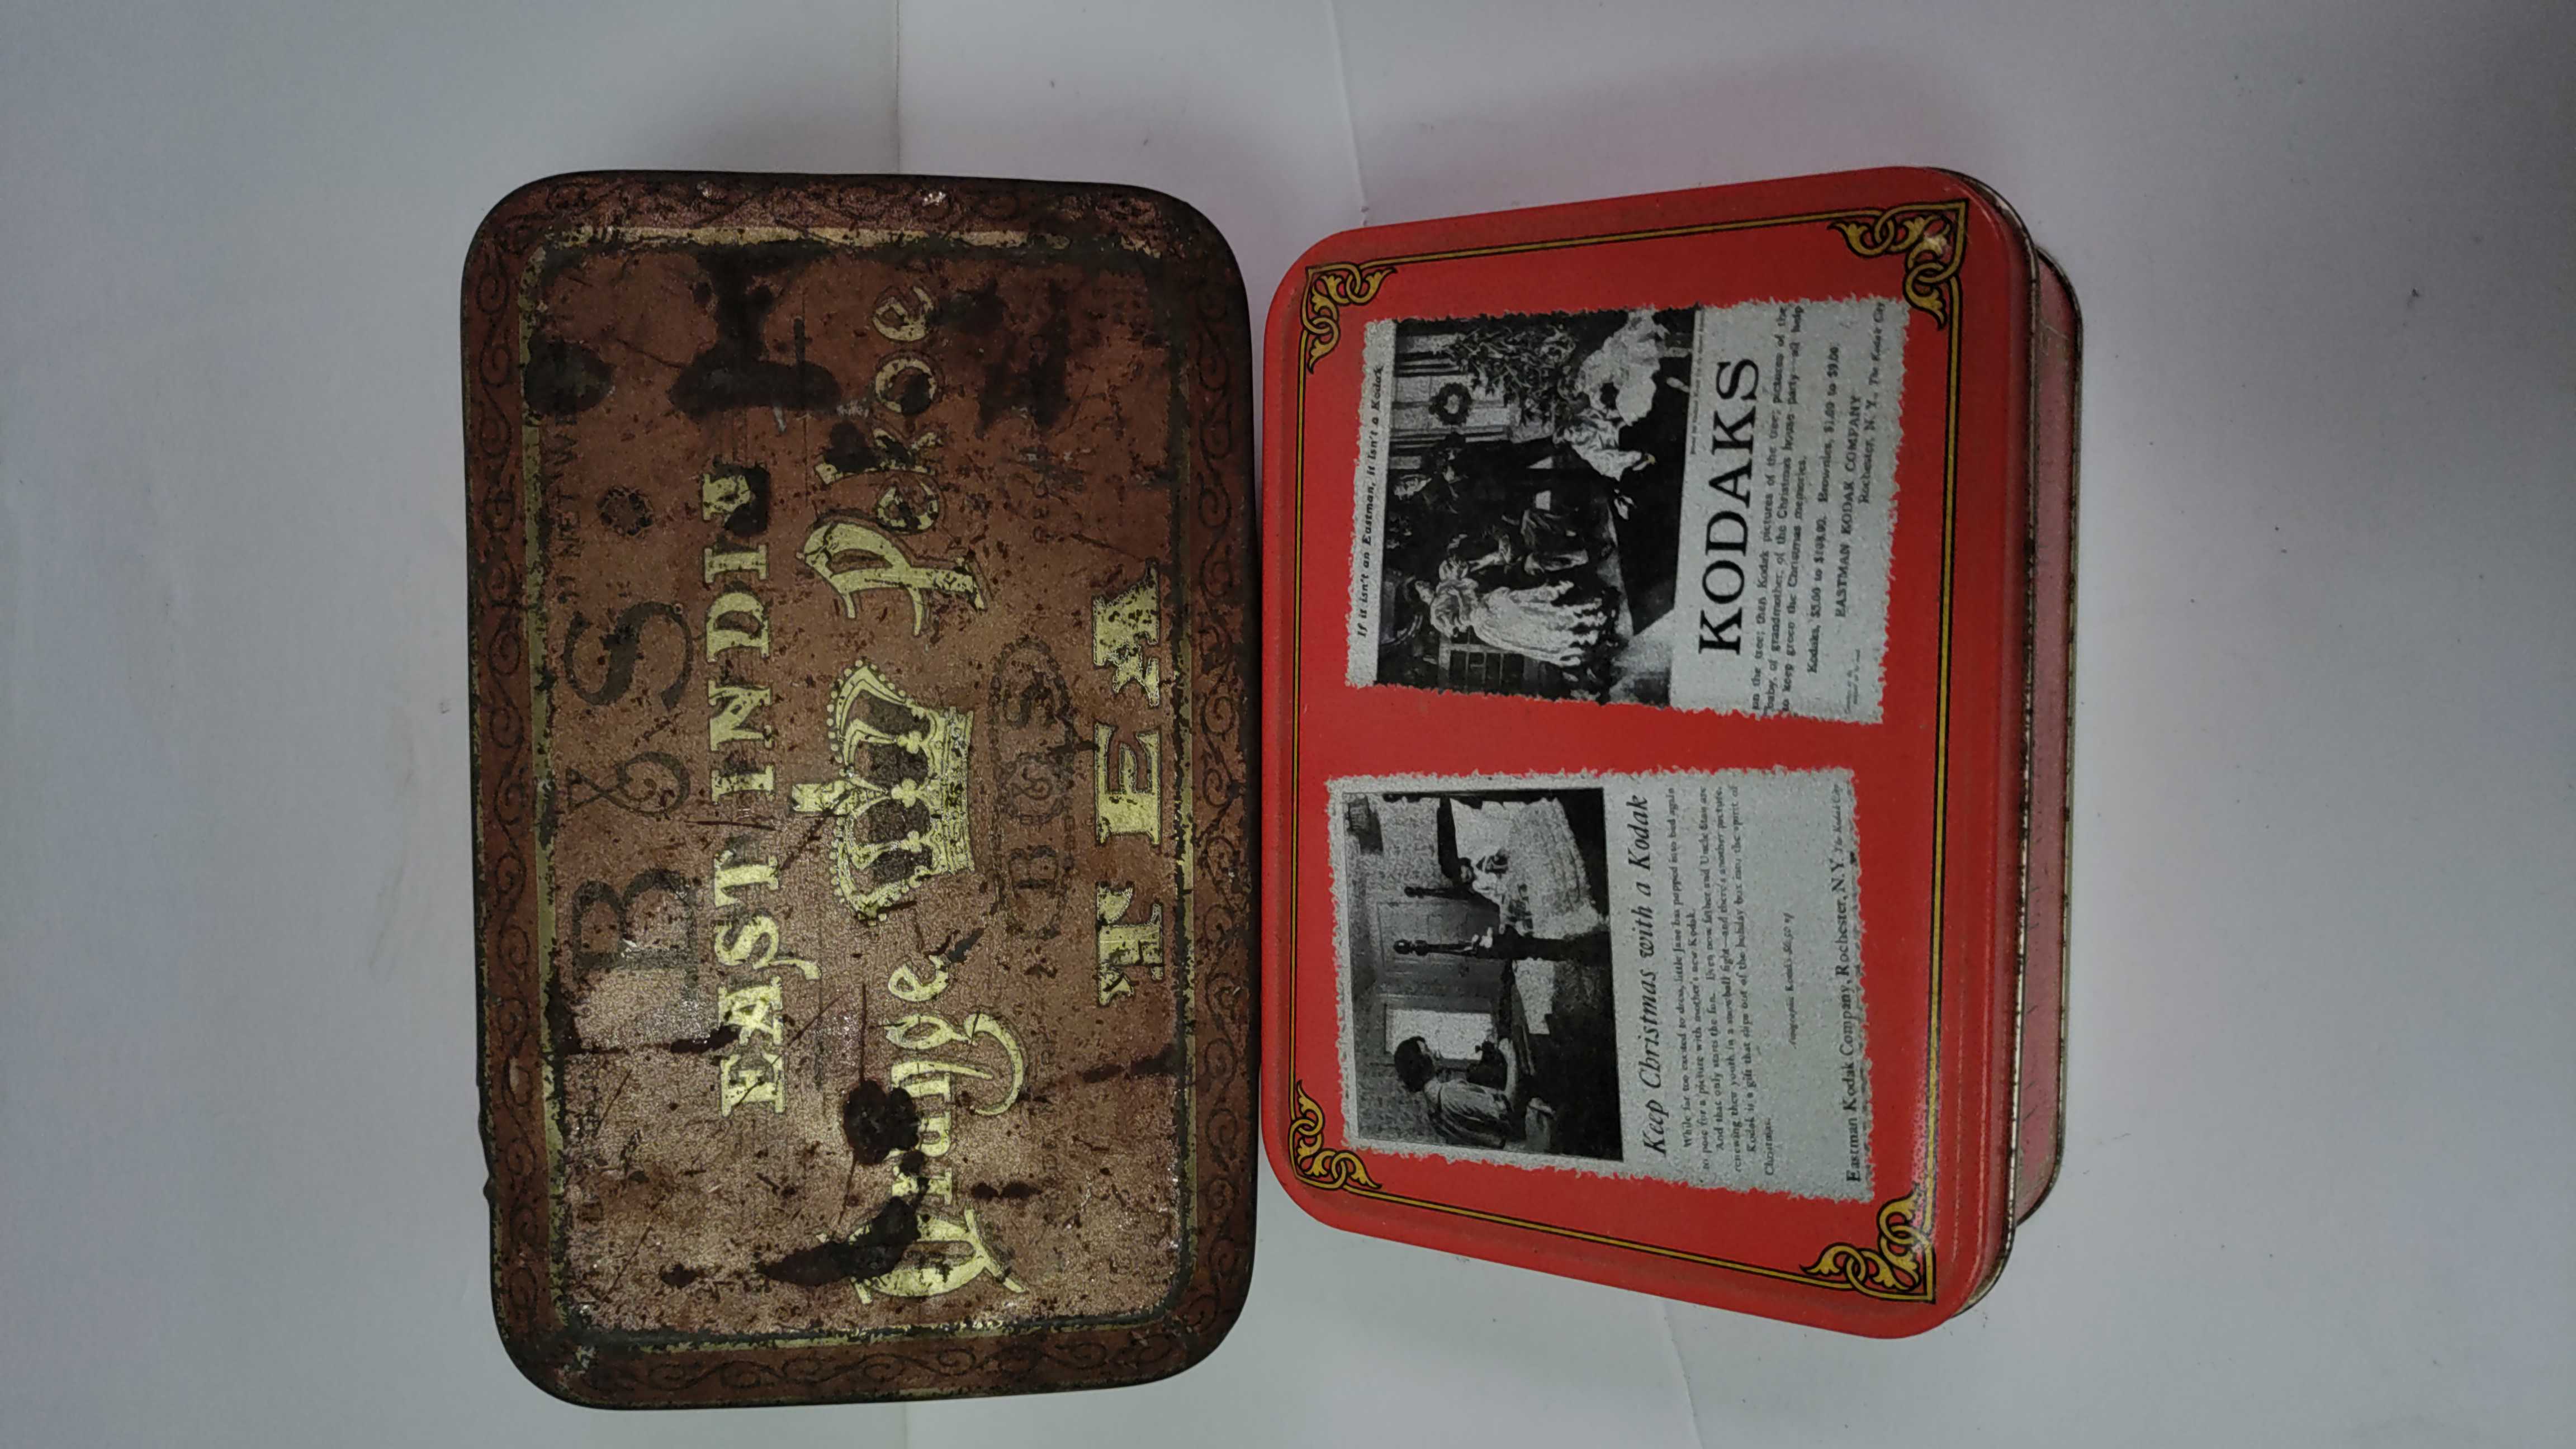 B & S
EAST INDIA
Orange Pekoe
B & S
TEA
If it isn't an Eastman, it isn't a Kodak.
KODAKS
on the tree; then Kodak pictures of the tree; pictures of the
baby, of grandmother, of the Christmas house party—all help
to keep green the Christmas memories.
Kodaks, $5.00 to $108.00. Brownies, $1.00 to $9.00.
EASTMAN KODAK COMPANY
Rochester, N. Y., The Kodak City
Keep Christmas with a Kodak
While far too excited to dress, little Jane has popped into bed again
to pose for a picture with mother's new Kodak.
And that only starts the fun. Even now father and Uncle Stan are
renewing their youth in a snowball fight—and there's another picture.
Kodak is a gift that slips out of the holiday box into the spirit of
Christmas.
Autographic Kodaks $6.50 up
Eastman Kodak Company, Rochester, N.Y. The Kodak City